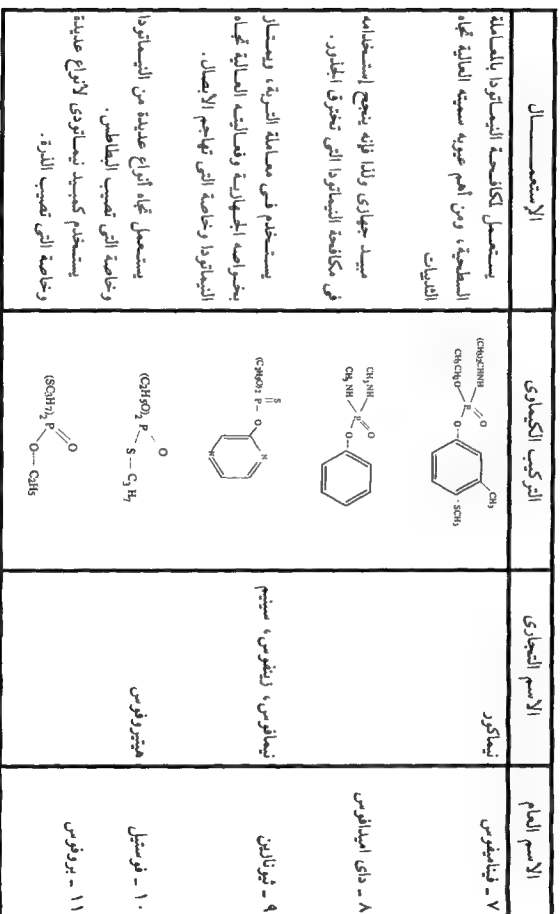 الاسم العام
الاسم التجارى
التركيب الكيماوى
الإستعمـــــال
٧ - فيناميفوس
نيماكور
(CH3)2CHNH
CH3CH2O
P
O
O
CH3
SCH3
يستعمل لمكافحة النيماتودا بالمعاملة
السطحية، ومن أهم عيوبه سميته العالية تجاه
الثدييات
٨ - داى اميدافوس
CH3NH
CH3NH
P
O
O
مبيد جهازى ولذا فإنه ينجح إستخدامه
فى مكافحة النيماتودا التى تخترق الجذور.
٩ - ثيونازين
نيمافوس، زينفوس، سينيم
(C2H5O)2 P - O
S
N
N
يستخدم فى معاملة التربة، ويمتاز
بخواصه الجهازية وفعاليته العالية تجاه
النيماتودا وخاصة التى تهاجم الابصال.
١٠ - فوستيل
هيتيروفوس
(C2H5O)2 P
O
S - C3H7
يستعمل تجاه أنواع عديدة من النيماتودا
وخاصة التى تصيب البطاطس.
١١ - بروفوس
(SC3H7)2 P
O
O - C2H5
يستخدم كمبيد نيماتودى لأنواع عديدة
وخاصة التى تصيب الذرة.